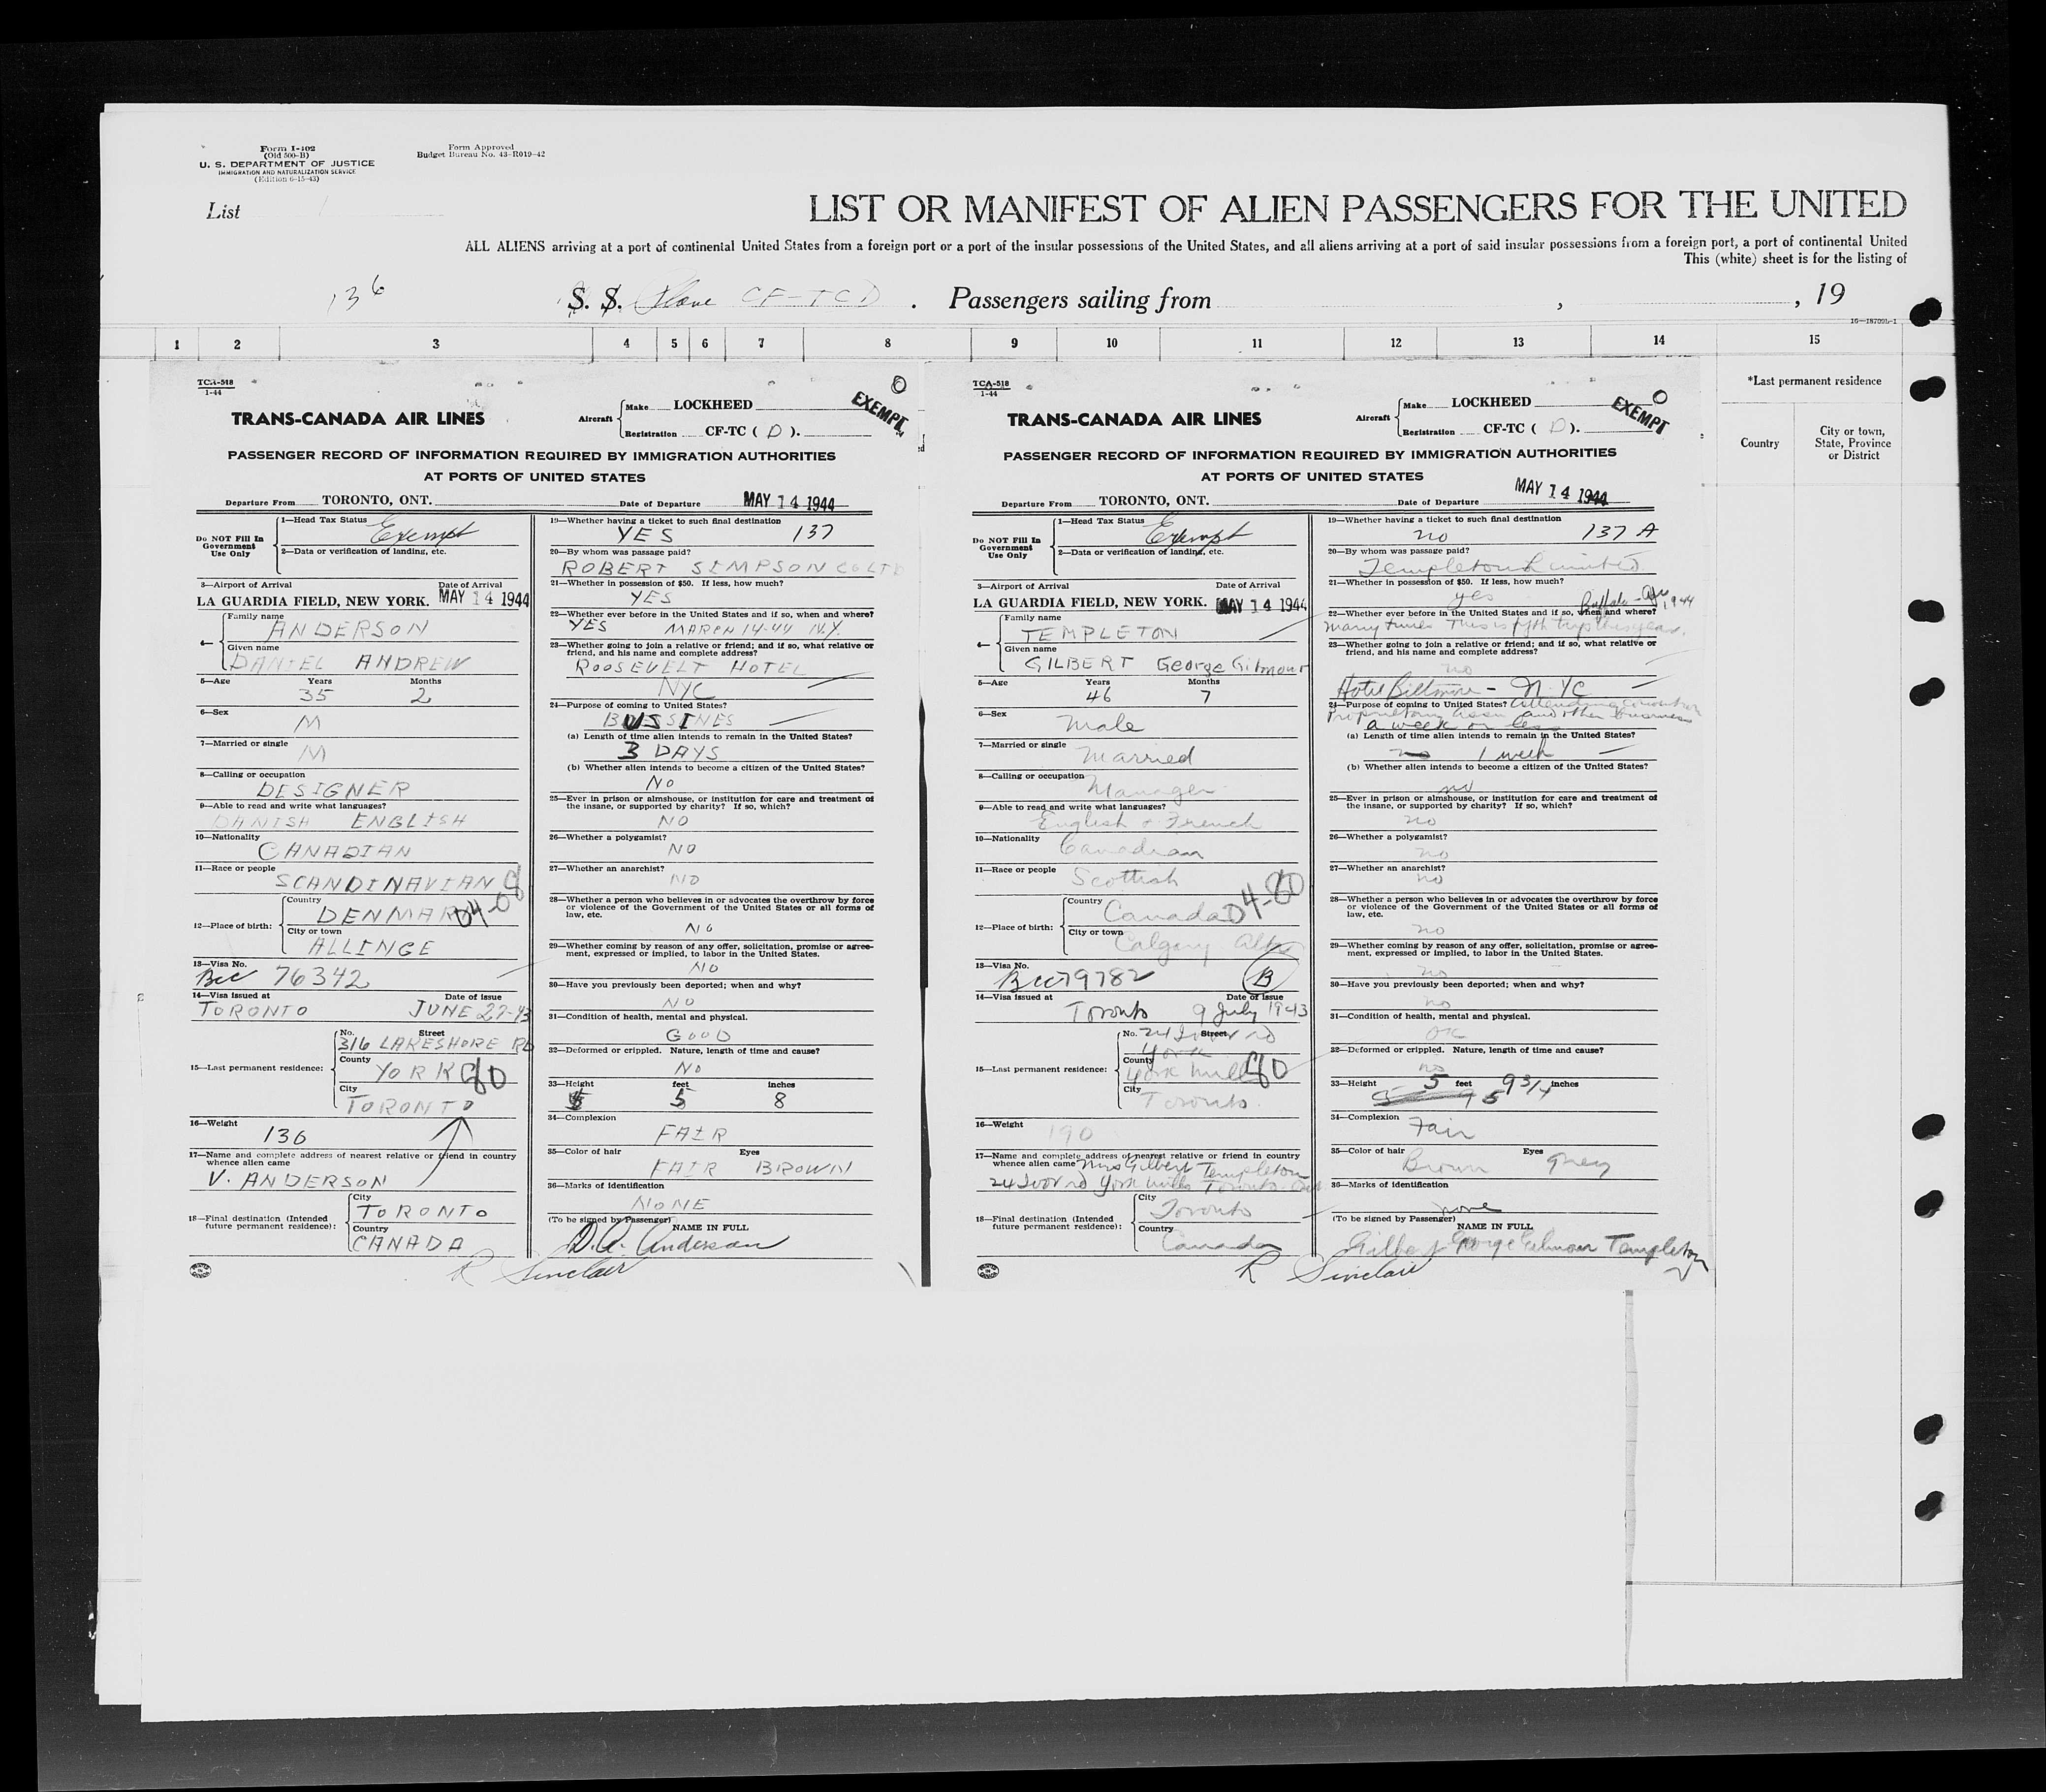 Form I-402
(Old 500-B)
U. S. DEPARTMENT OF JUSTICE
IMMIGRATION AND NATURALIZATION SERVICE
(Edition 6-15-43)
Form Approved
Budget Bureau No. 43-R019-42
List
LIST OR MANIFEST OF ALIEN PASSENGERS FOR THE UNITED
ALL ALIENS arriving at a port of continental United States from a foreign port or a port of the insular possessions of the United States, and all aliens arriving at a port of said insular possessions from a foreign port, a port of continental United
This (white) sheet is for the listing of
136
S. S. Plane CF-TCD . Passengers sailing from , , 19
16—18700b-1
1 2 3 4 5 6 7 8 9 10 11 12 13 14 15
*Last permanent residence
Country
City or town, State, Province or District
TCA-518
1-44
EXEMPT
TRANS-CANADA AIR LINES
Aircraft
Make LOCKHEED
Registration CF-TC ( D ).
PASSENGER RECORD OF INFORMATION REQUIRED BY IMMIGRATION AUTHORITIES
AT PORTS OF UNITED STATES
Departure From TORONTO, ONT.
Date of Departure MAY 14 1944
Do NOT Fill In Government Use Only
1—Head Tax Status Exempt
2—Data or verification of landing, etc.
3—Airport of Arrival Date of Arrival
LA GUARDIA FIELD, NEW YORK. MAY 14 1944
4—
Family name
ANDERSON
Given name
DANIEL ANDREW
5—Age Years Months
35 2
6—Sex
M
7—Married or single
M
8—Calling or occupation
DESIGNER
9—Able to read and write what languages?
DANISH ENGLISH
10—Nationality
CANADIAN
11—Race or people
SCANDINAVIAN
12—Place of birth:
Country
DENMARK 04-08
City or town
ALLINGE
13—Visa No.
Bcc 76342
14—Visa issued at Date of issue
TORONTO JUNE 27-43
15—Last permanent residence:
No. Street
316 LAKESHORE RD
County
YORK 80
City
TORONTO
16—Weight
136
17—Name and complete address of nearest relative or friend in country
whence alien came
V. ANDERSON
18—Final destination (Intended
future permanent residence):
City
TORONTO
Country
CANADA
R Sinclair
19—Whether having a ticket to such final destination
YES 137
20—By whom was passage paid?
ROBERT SIMPSON CO LTD
21—Whether in possession of $50. If less, how much?
YES
22—Whether ever before in the United States and if so, when and where?
YES MARCH 14-44 N.Y.
23—Whether going to join a relative or friend; and if so, what relative or
friend, and his name and complete address?
ROOSEVELT HOTEL
NYC
24—Purpose of coming to United States?
BUSSINES
(a) Length of time alien intends to remain in the United States?
3 DAYS
(b) Whether alien intends to become a citizen of the United States?
NO
25—Ever in prison or almshouse, or institution for care and treatment of
the insane, or supported by charity? If so, which?
NO
26—Whether a polygamist?
NO
27—Whether an anarchist?
NO
28—Whether a person who believes in or advocates the overthrow by force
or violence of the Government of the United States or all forms of
law, etc.
NO
29—Whether coming by reason of any offer, solicitation, promise or agree-
ment, expressed or implied, to labor in the United States.
NO
30—Have you previously been deported; when and why?
NO
31—Condition of health, mental and physical.
GOOD
32—Deformed or crippled. Nature, length of time and cause?
NO
33—Height feet inches
5 8
34—Complexion
FAIR
35—Color of hair Eyes
FAIR BROWN
36—Marks of identification
NONE
(To be signed by Passenger)
NAME IN FULL
D.A. Anderson
TCA-518
1-44
EXEMPT
TRANS-CANADA AIR LINES
Aircraft
Make LOCKHEED
Registration CF-TC ( D ).
PASSENGER RECORD OF INFORMATION REQUIRED BY IMMIGRATION AUTHORITIES
AT PORTS OF UNITED STATES
Departure From TORONTO, ONT.
Date of Departure MAY 14 1944
Do NOT Fill In Government Use Only
1—Head Tax Status Exempt
2—Data or verification of landing, etc.
3—Airport of Arrival Date of Arrival
LA GUARDIA FIELD, NEW YORK. MAY 14 1944
4—
Family name
TEMPLETON
Given name
GILBERT George Gilmour
5—Age Years Months
46 7
6—Sex
Male
7—Married or single
Married
8—Calling or occupation
Manager
9—Able to read and write what languages?
English & French
10—Nationality
Canadian
11—Race or people
Scottish
12—Place of birth:
Country
Canada 04-80
City or town
Calgary Alta
13—Visa No.
Bcc 79782 B
14—Visa issued at Date of issue
Toronto 9 July 1943
15—Last permanent residence:
No. Street
24 Ivor rd
York
County
York Mills 80
City
Toronto
16—Weight
190
17—Name and complete address of nearest relative or friend in country
whence alien came Mrs Gilbert Templeton
24 Ivor rd York Mills Toronto Ont
18—Final destination (Intended
future permanent residence):
City
Toronto
Country
Canada
R Sinclair
19—Whether having a ticket to such final destination
no 137 A
20—By whom was passage paid?
Templeton Limited
21—Whether in possession of $50. If less, how much?
yes
Buffalo 1944
22—Whether ever before in the United States and if so, when and where?
many times This is fifth trip this year.
23—Whether going to join a relative or friend; and if so, what relative or
friend, and his name and complete address?
no
Hotel Biltmore - N.Y.C
24—Purpose of coming to United States? Attending convention
Proprietary Assn and other business
a week or less
(a) Length of time alien intends to remain in the United States?
no 1 week
(b) Whether alien intends to become a citizen of the United States?
no
25—Ever in prison or almshouse, or institution for care and treatment of
the insane, or supported by charity? If so, which?
no
26—Whether a polygamist?
no
27—Whether an anarchist?
no
28—Whether a person who believes in or advocates the overthrow by force
or violence of the Government of the United States or all forms of
law, etc.
no
29—Whether coming by reason of any offer, solicitation, promise or agree-
ment, expressed or implied, to labor in the United States.
no
30—Have you previously been deported; when and why?
no
31—Condition of health, mental and physical.
OK
32—Deformed or crippled. Nature, length of time and cause?
no
33—Height 5 feet 9 3/4 inches
34—Complexion
Fair
35—Color of hair Eyes
Brown Grey
36—Marks of identification
none
(To be signed by Passenger)
NAME IN FULL
Gilbert George Gilmour Templeton